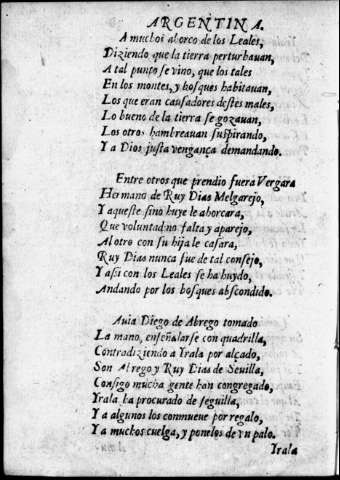 ARGENTINA.
A muchos ahorco de los Leales,
Diziendo que la tierra perturbauan,
A tal punto se vino, que los tales
En los montes, y bosques habitauan,
Los que eran causadores destes males,
Lo bueno de la tierra se gozauan,
Los otros hambreauan suspirando,
Y a Dios justa vengança demandando.
Entre otros que prendio fuera Vergara
Hermano de Ruy Dias Melgarejo,
Y aqueste sino huye le ahorcara,
Que voluntad no falta y aparejo,
Al otro con su hija le casara,
Ruy Dias nunca fue de tal consejo,
Y asi con los Leales se ha huydo,
Andando por los bosques abscondido.
Auia Diego de Abrego tomado
La mano, enseñalarse con quadrilla,
Contradiziendo a Yrala por alçado,
Son Abrego y Ruy Dias de Seuilla,
Consigo mucha gente han congregado,
Yrala ha procurado de seguilla,
Y a algunos los conmueue por regalo,
Y a muchos cuelga, y ponelos de vn palo.
Yrala